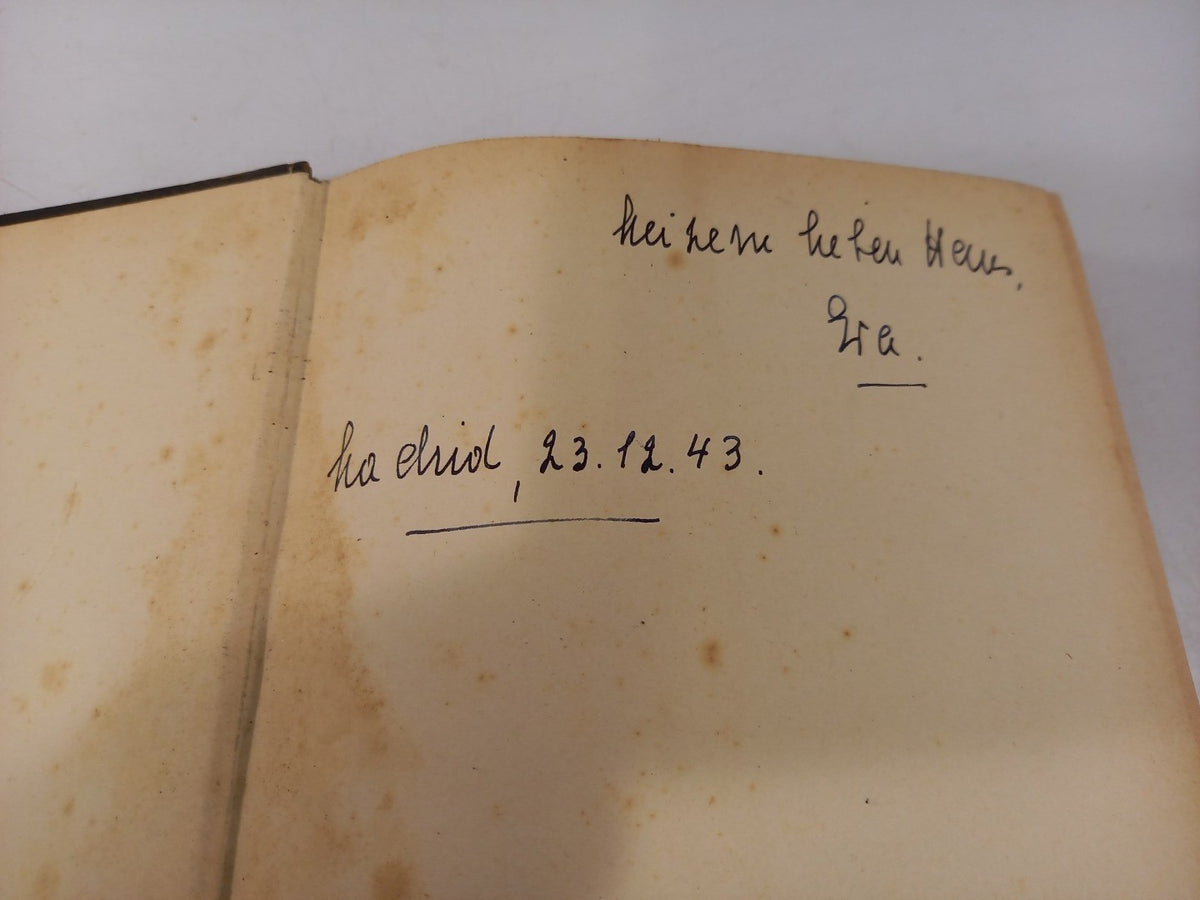 Meinem lieben Hans,
Eva.
Madrid, 23.12.43.